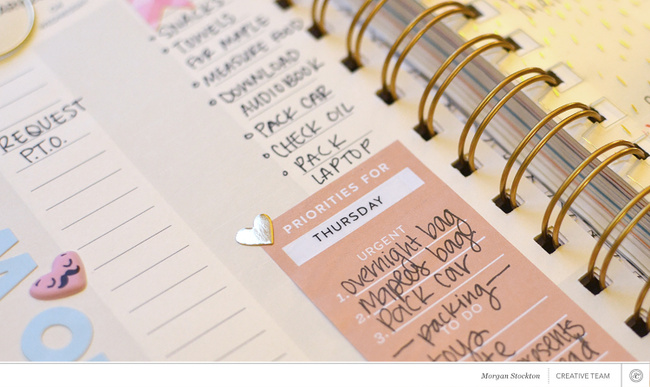 REQUEST
P.T.O.
SNACKS
TOWELS
FOR MAPLE
MEASURE FOOD
DOWNLOAD
AUDIOBOOK
PACK CAR
CHECK OIL
PACK
LAPTOP
PRIORITIES FOR
THURSDAY
URGENT
1. overnight bag
2. Maple's bag
3. pack car
— packing —
TO DO
Morgan Stockton
CREATIVE TEAM